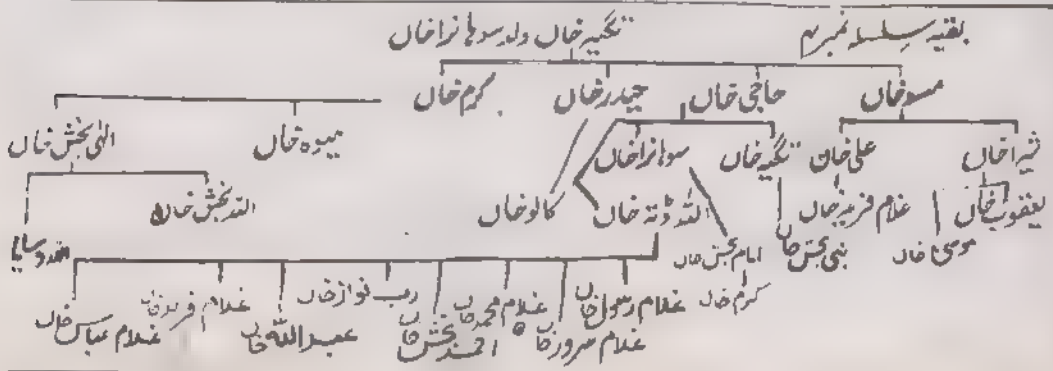 بقیہ سلسلہ نمبر ۴
تگیہ خاں ولد سوہانرا خاں
مسو خاں حاجی خاں حیدر خاں کرم خاں
شیرا خاں علی خان تگیہ خاں سوہانرا خاں میوہ خاں الٰہی بخش خاں
یعقوب خاں موسیٰ خاں غلام فرید خاں نبی بخش خاں امام بخش خاں اللہ ڈتہ خاں کالو خاں اللہ بخش خاں اللہ وسایا
کرم خاں
غلام رسول خاں غلام سرور خاں غلام محمد خاں احمد بخش خاں رب نواز خاں عبد اللہ خاں غلام فرید خاں غلام عباس خاں